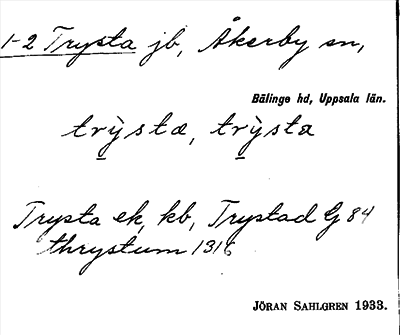 1-2 Trysta jb, Åkerby sn,
Bälinge hd, Uppsala län.
trỳsta, trỳsta
Trysta ek, kb, Trystad G 84
thrystum 1316
JÖRAN SAHLGREN 1933.